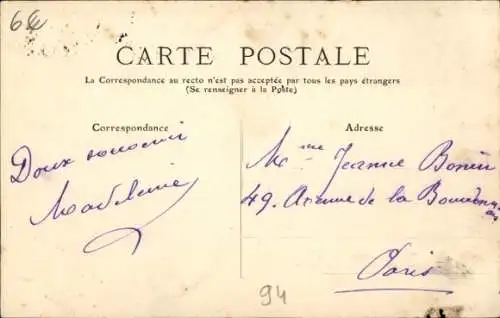 6€
CARTE POSTALE
La Correspondance au recto n'est pas acceptée par tous les pays étrangers
(Se renseigner à la Poste)
Correspondance
Doux souvenir
Madeleine
Adresse
Mme Jeanne Bonin
49. Avenue de la
Paris
94